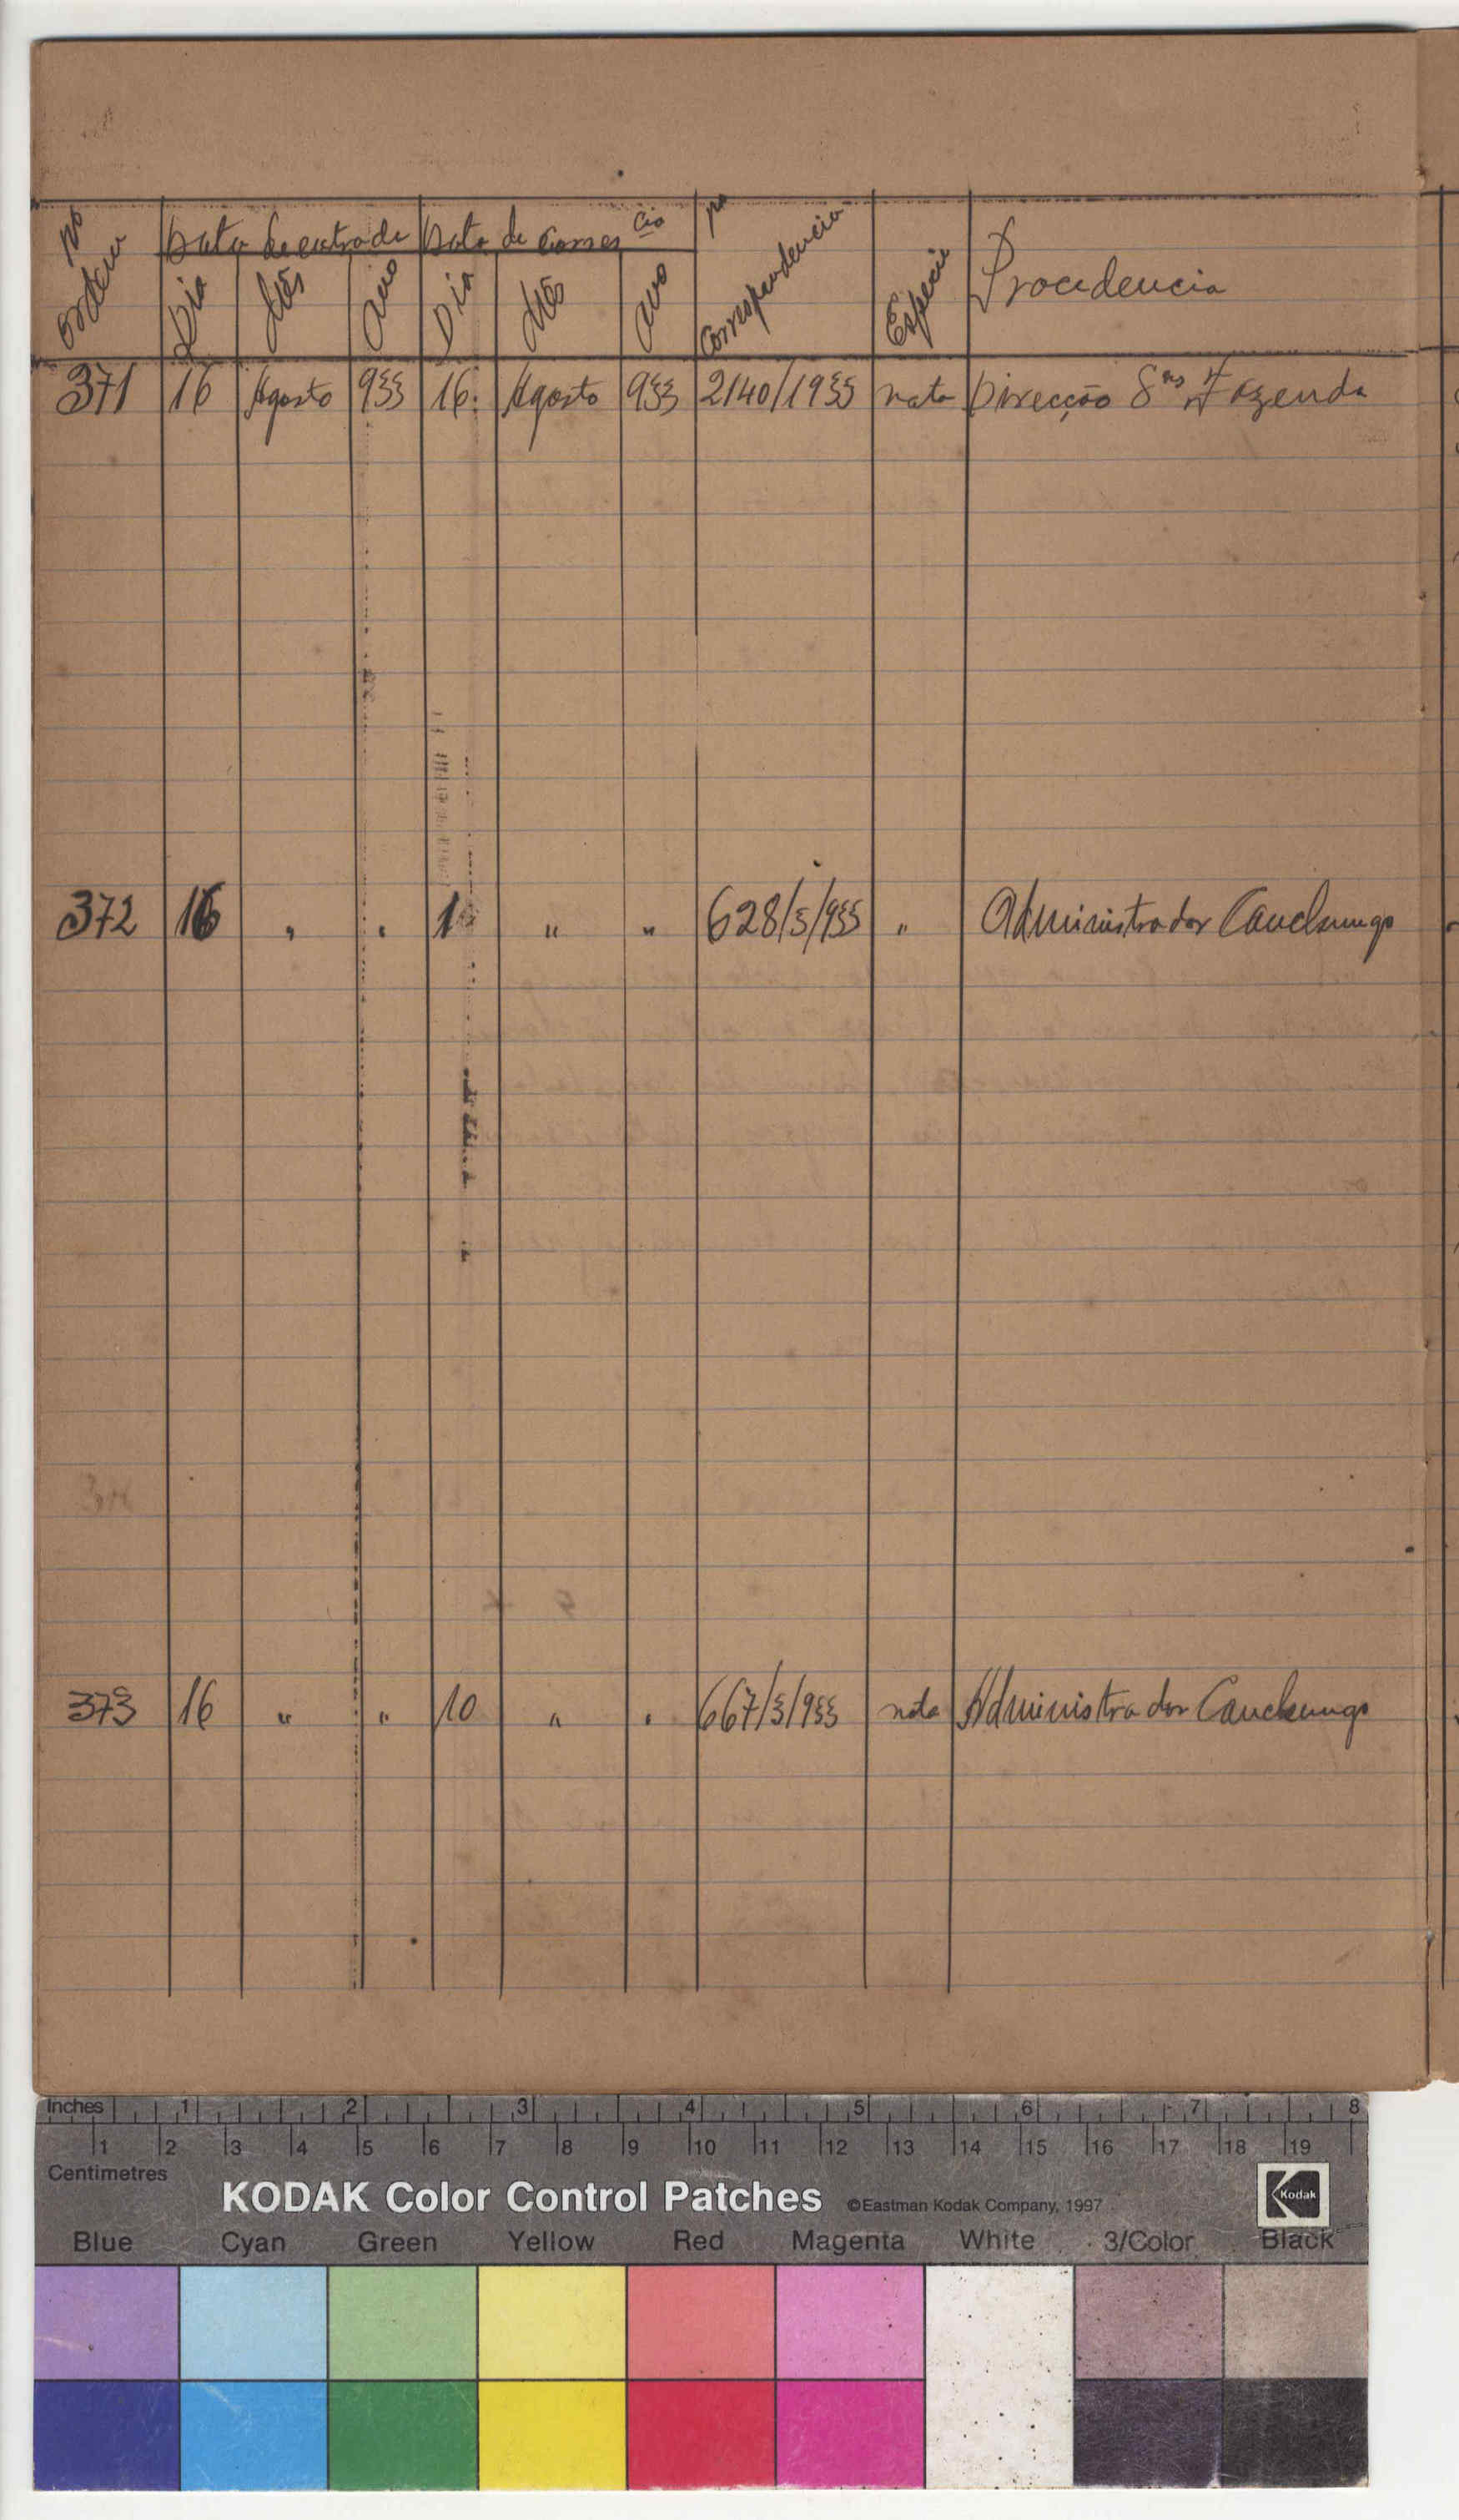 nº ordem Data de entrada Data de corres cia nº correspondencia Especie Procedencia
Dia Mês Ano Dia Mês Ano
371 16 Agosto 933 16. Agosto 933 2140/1933 nota Direcção Sros Fazenda
372 16 " " 1 " " 628/3/933 " Administrador Canchungo
373 16 " " 10 " " 667/3/933 nota Administrador Canchungo
Inches 1 2 3 4 5 6 7 8
1 2 3 4 5 6 7 8 9 10 11 12 13 14 15 16 17 18 19
Centimetres
KODAK Color Control Patches ©Eastman Kodak Company, 1997 Kodak
Blue Cyan Green Yellow Red Magenta White 3/Color Black